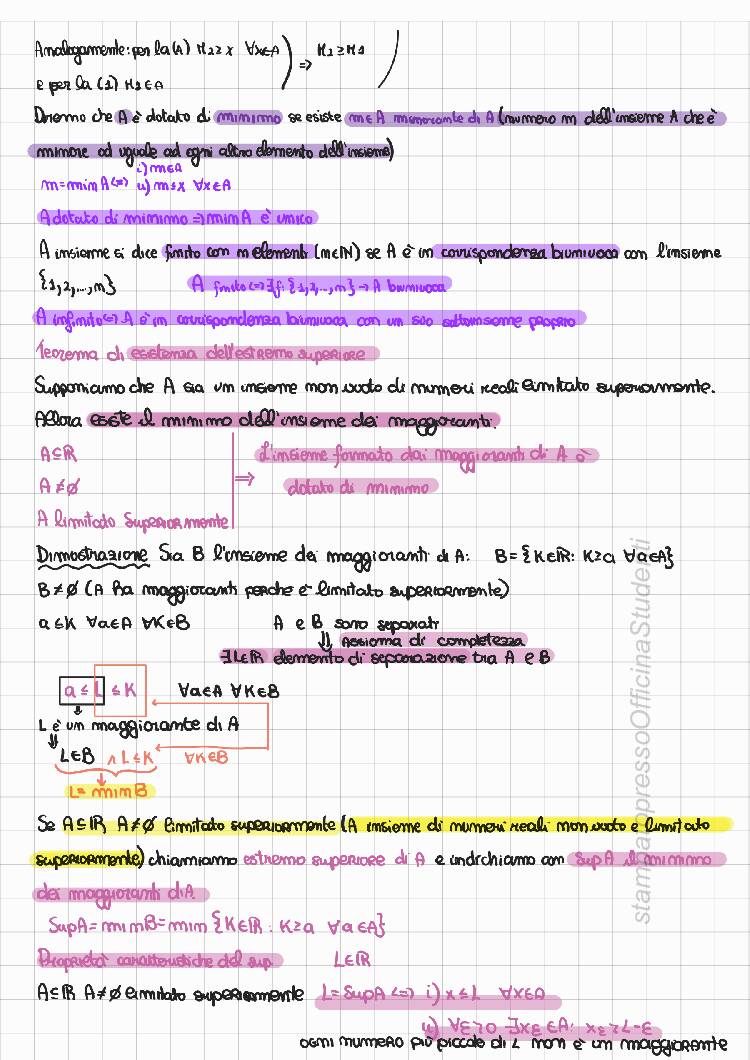 Analogamente: per la (1) M2 ≥ x ∀x∈A ) ⇒ M2 ≥ M1 )
e per la (1) M1 ∈ A
Diremo che A è dotato di minimo se esiste m∈A minorante di A (numero m dell'insieme A che è
minore od uguale ad ogni altro elemento dell'insieme)
i) m∈A
m = min A <=> ii) m ≤ x ∀x∈A
A dotato di minimo ⇒ min A è unico
A insieme si dice finito con n elementi (n∈ℕ) se A è in corrispondenza biunivoca con l'insieme
{1,2,...,n} A finito <=> ∃f: {1,2,...,n} → A biunivoca
A infinito <=> A è in corrispondenza biunivoca con un suo sottoinsieme proprio
Teorema di esistenza dell'estremo superiore
Supponiamo che A sia un insieme non vuoto di numeri reali limitato superiormente.
Allora esiste il minimo dell'insieme dei maggioranti.
A ⊆ ℝ L'insieme formato dai maggioranti di A è
A ≠ ∅ ⇒ dotato di minimo
A limitato Superiormente
Dimostrazione Sia B l'insieme dei maggioranti di A: B = {K∈ℝ: K ≥ a ∀a∈A}
B ≠ ∅ (A ha maggioranti perché è limitato superiormente)
a ≤ K ∀a∈A ∀K∈B A e B sono separati
⇓ Assioma di completezza
∃L∈ℝ elemento di separazione tra A e B
a ≤ L ≤ K ∀a∈A ∀K∈B
L è un maggiorante di A
⇓
L∈B ∧ L ≤ K ∀K∈B
L = min B
Se A ⊆ ℝ, A ≠ ∅ limitato superiormente (A insieme di numeri reali non vuoto e limitato
superiormente) chiamiamo estremo superiore di A e indichiamo con Sup A il minimo
dei maggioranti di A.
Sup A = min B = min {K∈ℝ : K ≥ a ∀a∈A}
Proprietà caratteristiche del sup L∈ℝ
A ⊆ ℝ A ≠ ∅ limitato superiormente L = Sup A <=> i) x ≤ L ∀x∈A
ii) ∀ε>0 ∃xε ∈A: xε > L-ε
ogni numero più piccolo di L non è un maggiorante
stampatopressoOfficinaStudenti